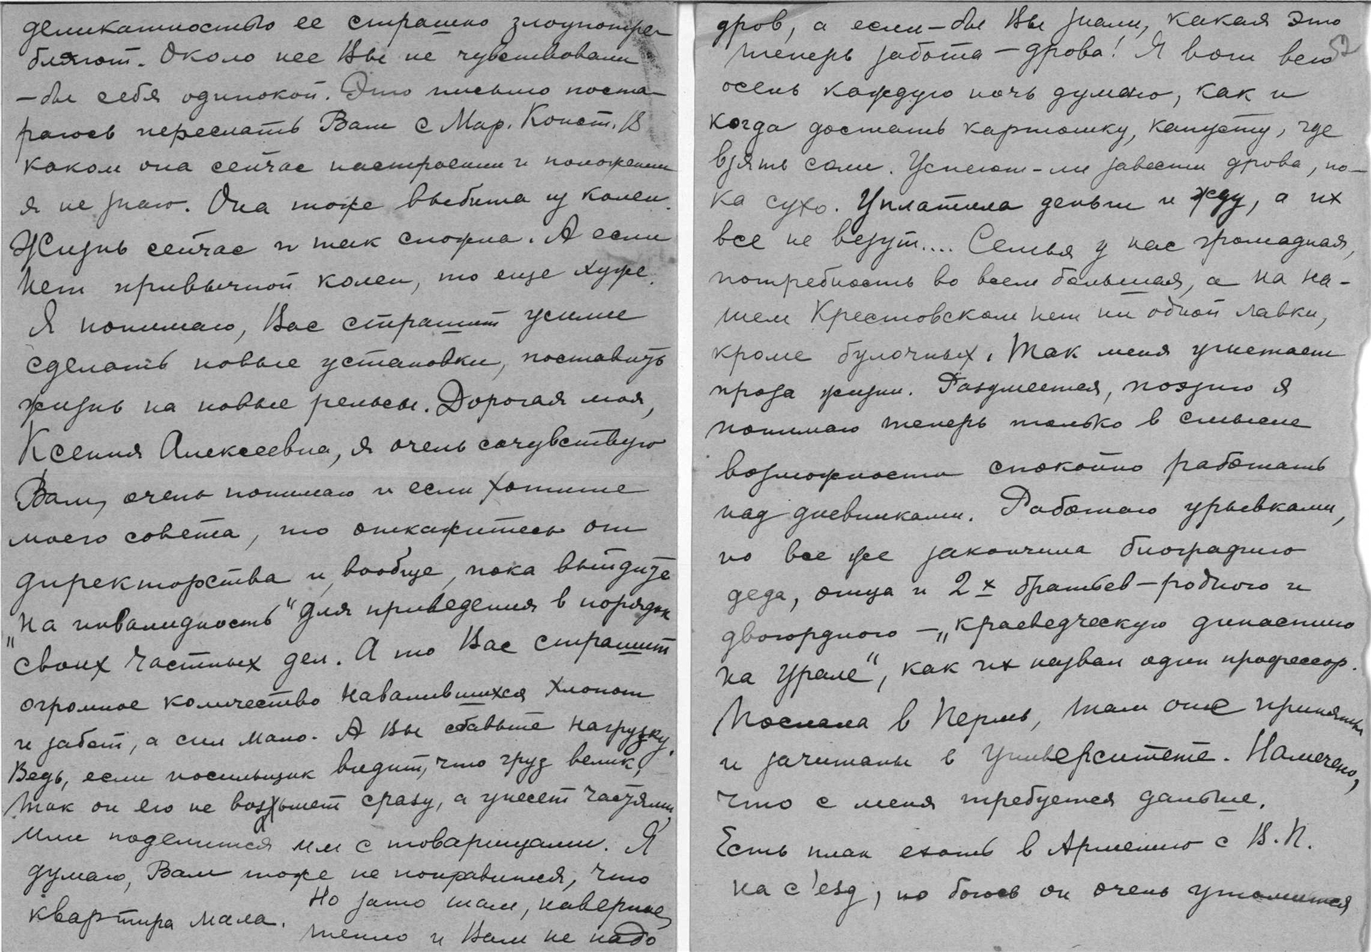 деликатностью ее страшно злоупотре-
бляют. Около нее Вы не чувствовали
-бы себя одинокой. Это письмо поста-
раюсь переслать Вам с Мар. Конст. В
каком она сейчас настроении и положении
я не знаю. Она тоже выбита из колеи.
Жизнь сейчас и так сложна. А если
нет привычной колеи, то еще хуже.
Я понимаю, Вас страшит усилие
сделать новые установки, поставить
жизнь на новые рельсы. Дорогая моя,
Ксения Алексеевна, я очень сочувствую
Вам, очень понимаю и если хотите
моего совета, то откажитесь от
директорства и, вообще, пока выйдите
"на инвалидность" для приведения в порядок
своих частных дел. А то Вас страшит
огромное количество навалившихся хлопот
и забот, а сил мало. А Вы сбавьте нагрузку.
Ведь, если носильщик видит, что груз велик,
так он его не возьмет сразу, а унесет частями,
или поделится им с товарищами. Я
думаю, Вам тоже не понравится, что
квартира мала. Но зато там, наверное,
тепло и Вам не надо
52
дров, а если-бы Вы знали, какая это
теперь забота - дрова! Я вот всю
осень каждую ночь думаю, как и
когда достать картошку, капусту, где
взять соли. Успеют-ли завезти дрова, по-
ка сухо. Уплатила деньги и жду, а их
все не везут.... Семья у нас громадная,
потребность во всем большая, а на на-
шем Крестовском нет ни одной лавки,
кроме булочных. Так меня угнетает
проза жизни. Разумеется, поэзию я
понимаю теперь только в смысле
возможности спокойно работать
над дневниками. Работаю урывками,
но все же закончила биографию
деда, отца и 2х братьев - родного и
двоюродного - "краеведческую династию
на Урале", как их назвал один профессор.
Послала в Пермь, там они приняты
и зачитаны в Университете. Намечено,
что с меня требуется дальше.
Есть план ехать в Армению с В.П.
на с'езд, но боюсь он очень утомится